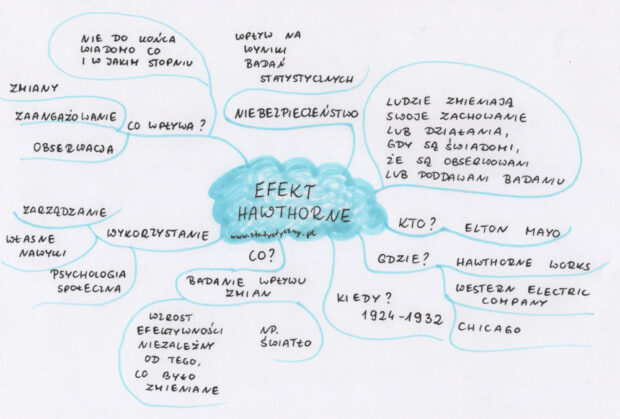 NIE DO KOŃCA
WIADOMO CO
I W JAKIM STOPNIU
ZMIANY
ZAANGAŻOWANIE
CO WPŁYWA?
OBSERWACJA
WPŁYW NA
WYNIKI
BADAŃ
STATYSTYCZNYCH
NIEBEZPIECZEŃSTWO
LUDZIE ZMIENIAJĄ
SWOJE ZACHOWANIE
LUB DZIAŁANIA,
GDY SĄ ŚWIADOMI,
ŻE SĄ OBSERWOWANI
LUB PODDAWANI BADANIU
EFEKT
HAWTHORNE
www.statystyczny.pl
ZARZĄDZANIE
WŁASNE
NAWYKI
WYKORZYSTANIE
PSYCHOLOGIA
SPOŁECZNA
CO?
BADANIE WPŁYWU
ZMIAN
WZROST
EFEKTYWNOŚCI
NIEZALEŻNY
OD TEGO,
CO BYŁO
ZMIENIANE
NP.
ŚWIATŁO
KTO?
ELTON MAYO
GDZIE?
HAWTHORNE WORKS
WESTERN ELECTRIC
COMPANY
CHICAGO
KIEDY?
1924-1932